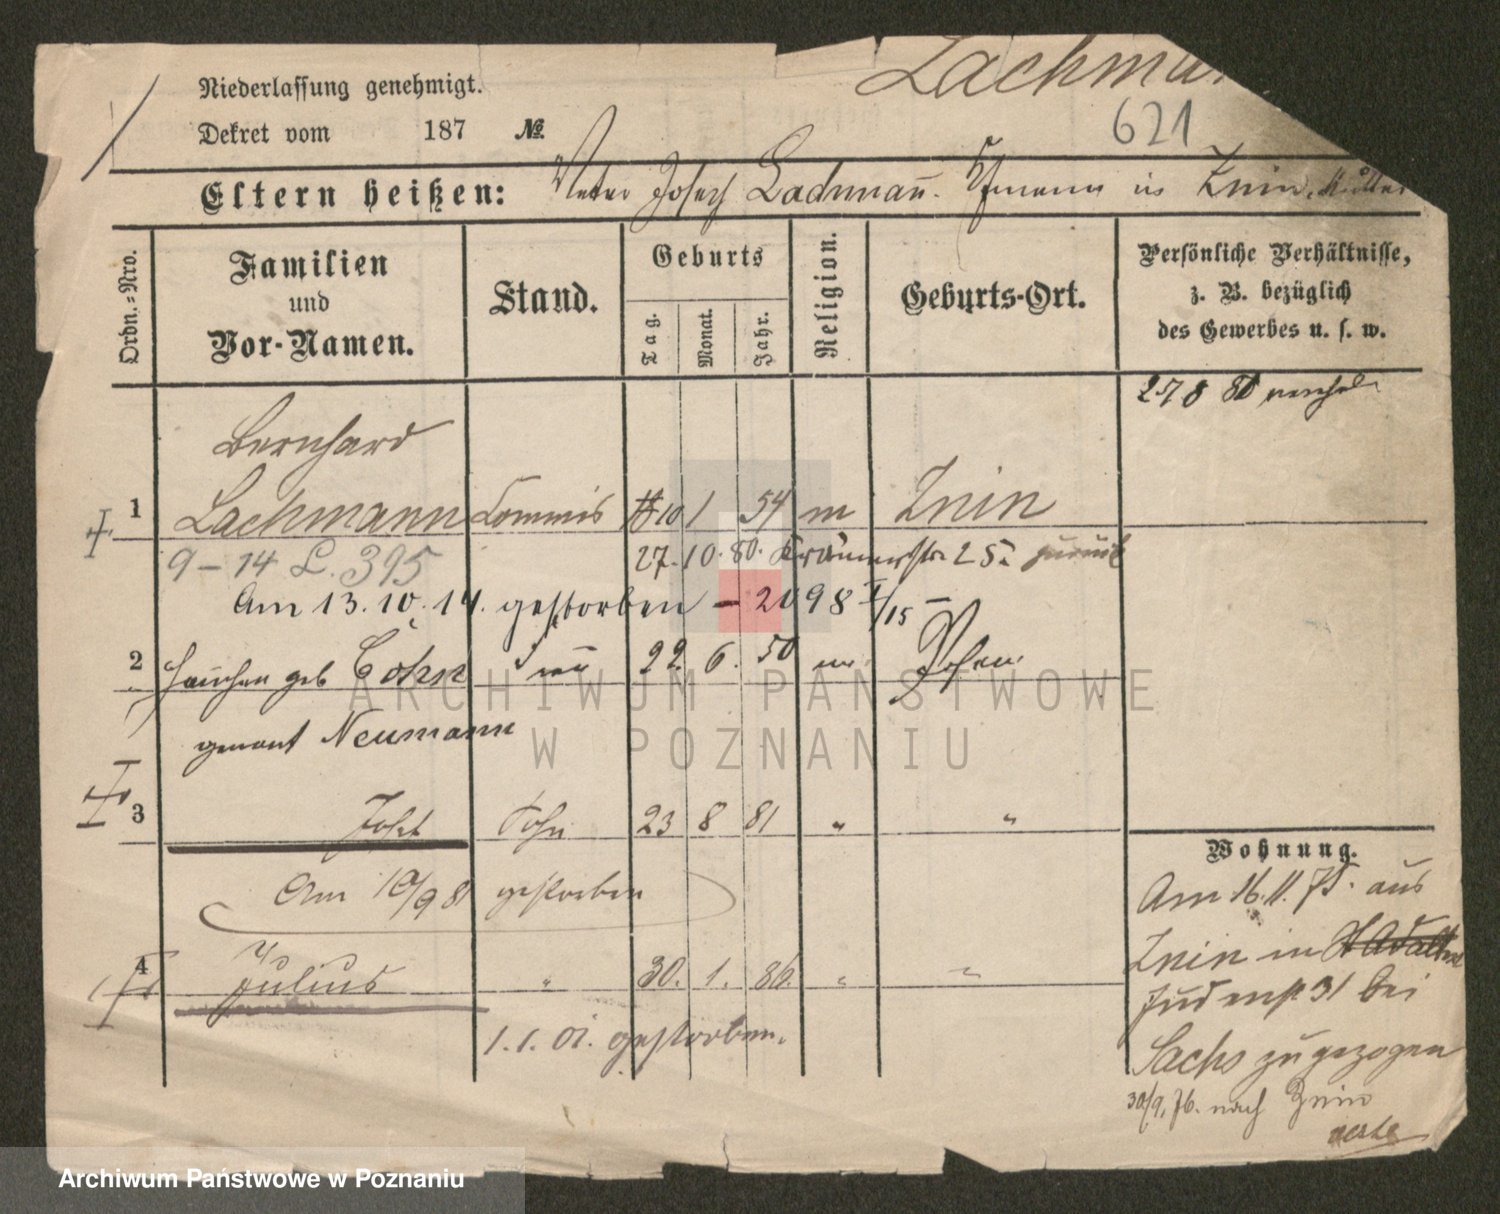 Niederlassung genehmigt.
Lachman
Dekret vom 187 №.
621
Eltern heißen: Vater Josef Lachmann. in Znin, Mutter
Ordn.-Nro.
Familien
und
Vor-Namen.
Stand.
Geburts
Tag.
Monat.
Jahr.
Religion.
Geburts-Ort.
Persönliche Verhältnisse,
z. B. bezüglich
des Gewerbes u. s. w.
27 8 80
Bernhard
1 Lachmann Commis 10 1 54 m Znin
9 – 14 L. 395
27. 10. 80. Krämerstr. 25. zurück
Am 13. 10. 14. gestorben – 2098 I/15 –
2 geb Cohn Frau 22. 6. 50 m. Posen.
genant Neumann
3 Sohn 23 8 81 " "
Am 10/9 81 gestorben
4 Julius " 30. 1. 86. " "
1. 1. 01. gestorben.
Wohnung.
Am 16. 11. 75. aus
Znin in
Judenst 31 bei
Sachs zugezogen
30/9. 76. nach Znin
ARCHIWUM PAŃSTWOWE
W POZNANIU
Archiwum Państwowe w Poznaniu